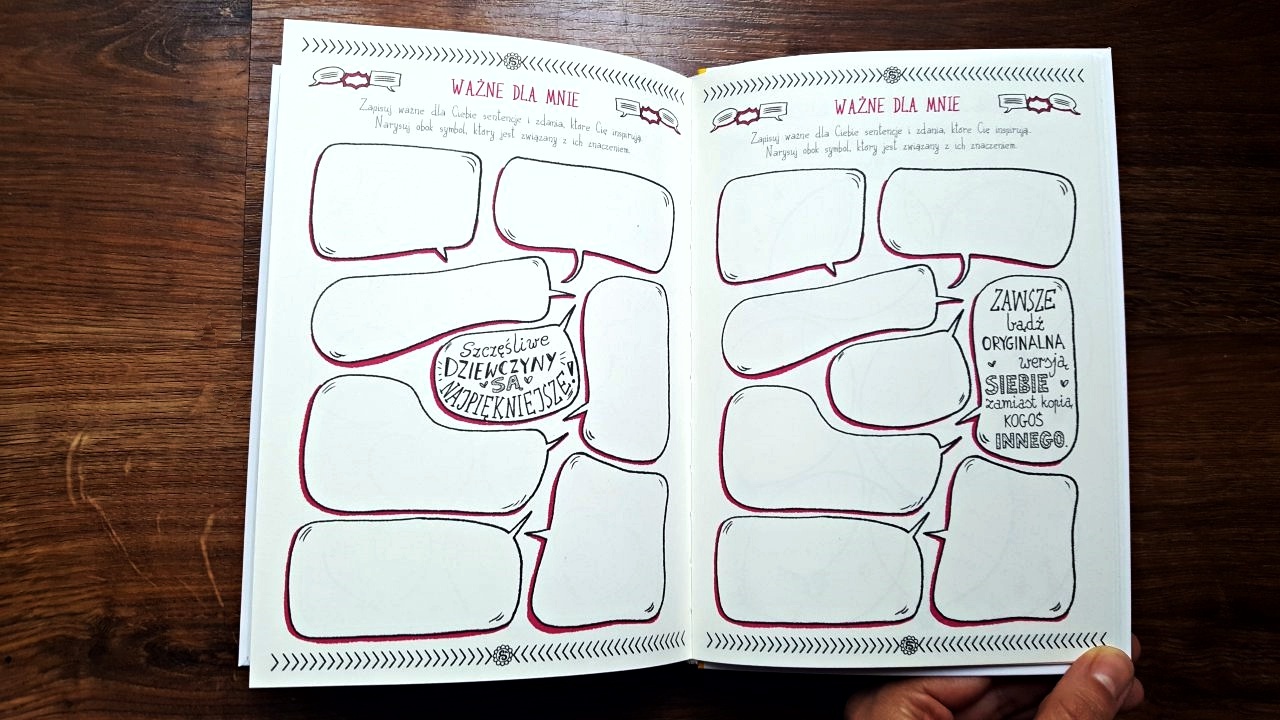 WAŻNE DLA MNIE
Zapisuj ważne dla Ciebie sentencje i zdania, które Cię inspirują.
Narysuj obok symbol, który jest związany z ich znaczeniem.
Szczęśliwe
DZIEWCZYNY
SĄ
NAJPIĘKNIEJSZE!
WAŻNE DLA MNIE
Zapisuj ważne dla Ciebie sentencje i zdania, które Cię inspirują.
Narysuj obok symbol, który jest związany z ich znaczeniem.
ZAWSZE
bądź
ORYGINALNA
wersją
SIEBIE
zamiast kopią
KOGOŚ
INNEGO.